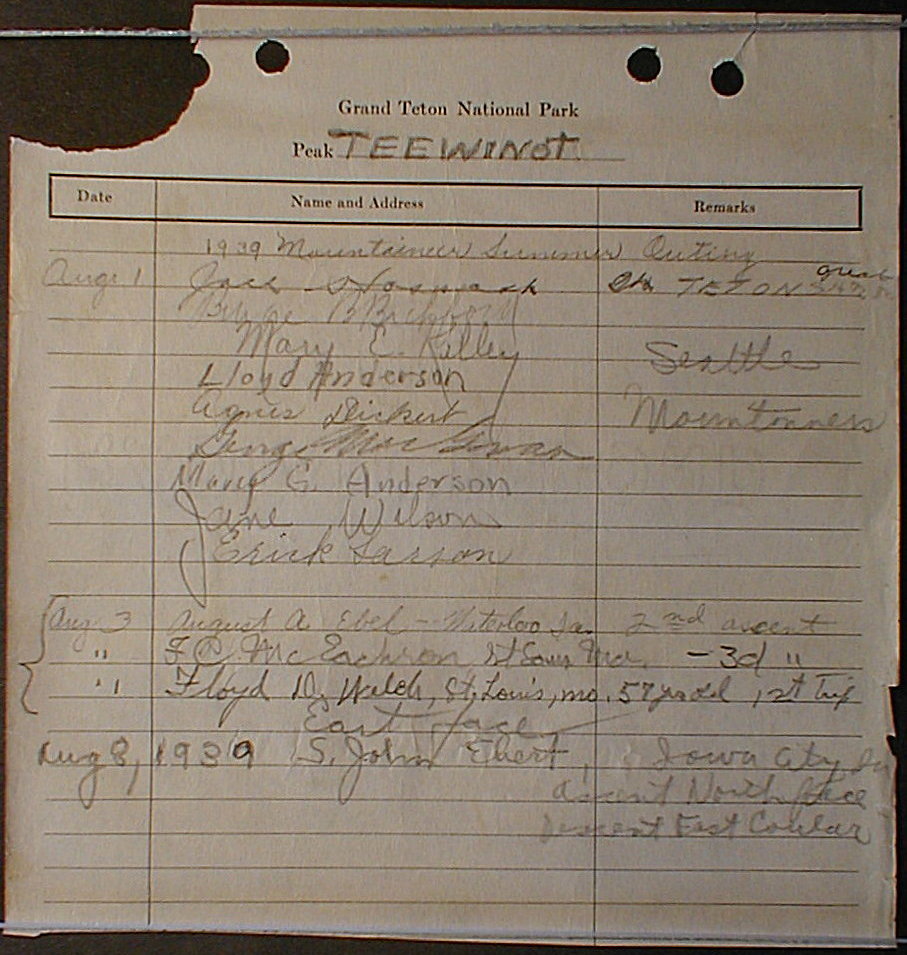 Grand Teton National Park
Peak TEEWINOT
Date Name and Address Remarks
1939 Mountaineer Summer Outing
Aug. 1 Jack TETON
Mary E. Kelley Seattle
Lloyd Anderson
Agnes Dickert
George MacGowan
Mary G. Anderson
Jane Wilson
Erick Larson
Aug 3 August A. Ebel - Waterloo Ia. 2nd ascent
" F C McEachron, St Louis Mo. - 3d "
" Floyd D. Welch, St. Louis, mo. 57 yrs old, 1st Trip
East face
Aug 8, 1939 S. John Ebert, Iowa City Ia
ascent North face
Descent East Coular